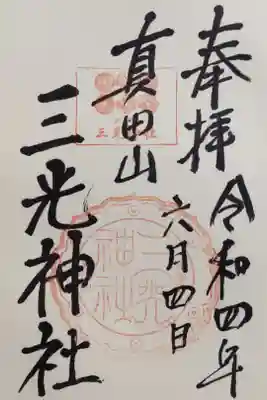 奉拝
令和四年
六月四日
真田山
三光神社
三光神社